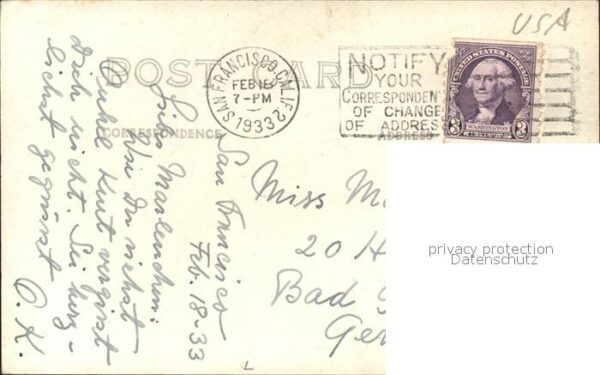 USA
POST CARD
CORRESPONDENCE
ADDRESS
SAN FRANCISCO, CALIF. 2
FEB 18
7-PM
1933
NOTIFY
YOUR
CORRESPONDENT
OF CHANGE
OF ADDRESS
UNITED STATES POSTAGE
3 WASHINGTON 3
CENTS
San Francisco
Feb. 18-33
Liebes Marlenchen:
Wie Du siehst
Onkel Kurt vergisst
Dich nicht. Sei herz-
lichst gegrüsst
O. K.
Miss M
20 H
Bad
Ger
privacy protection
Datenschutz